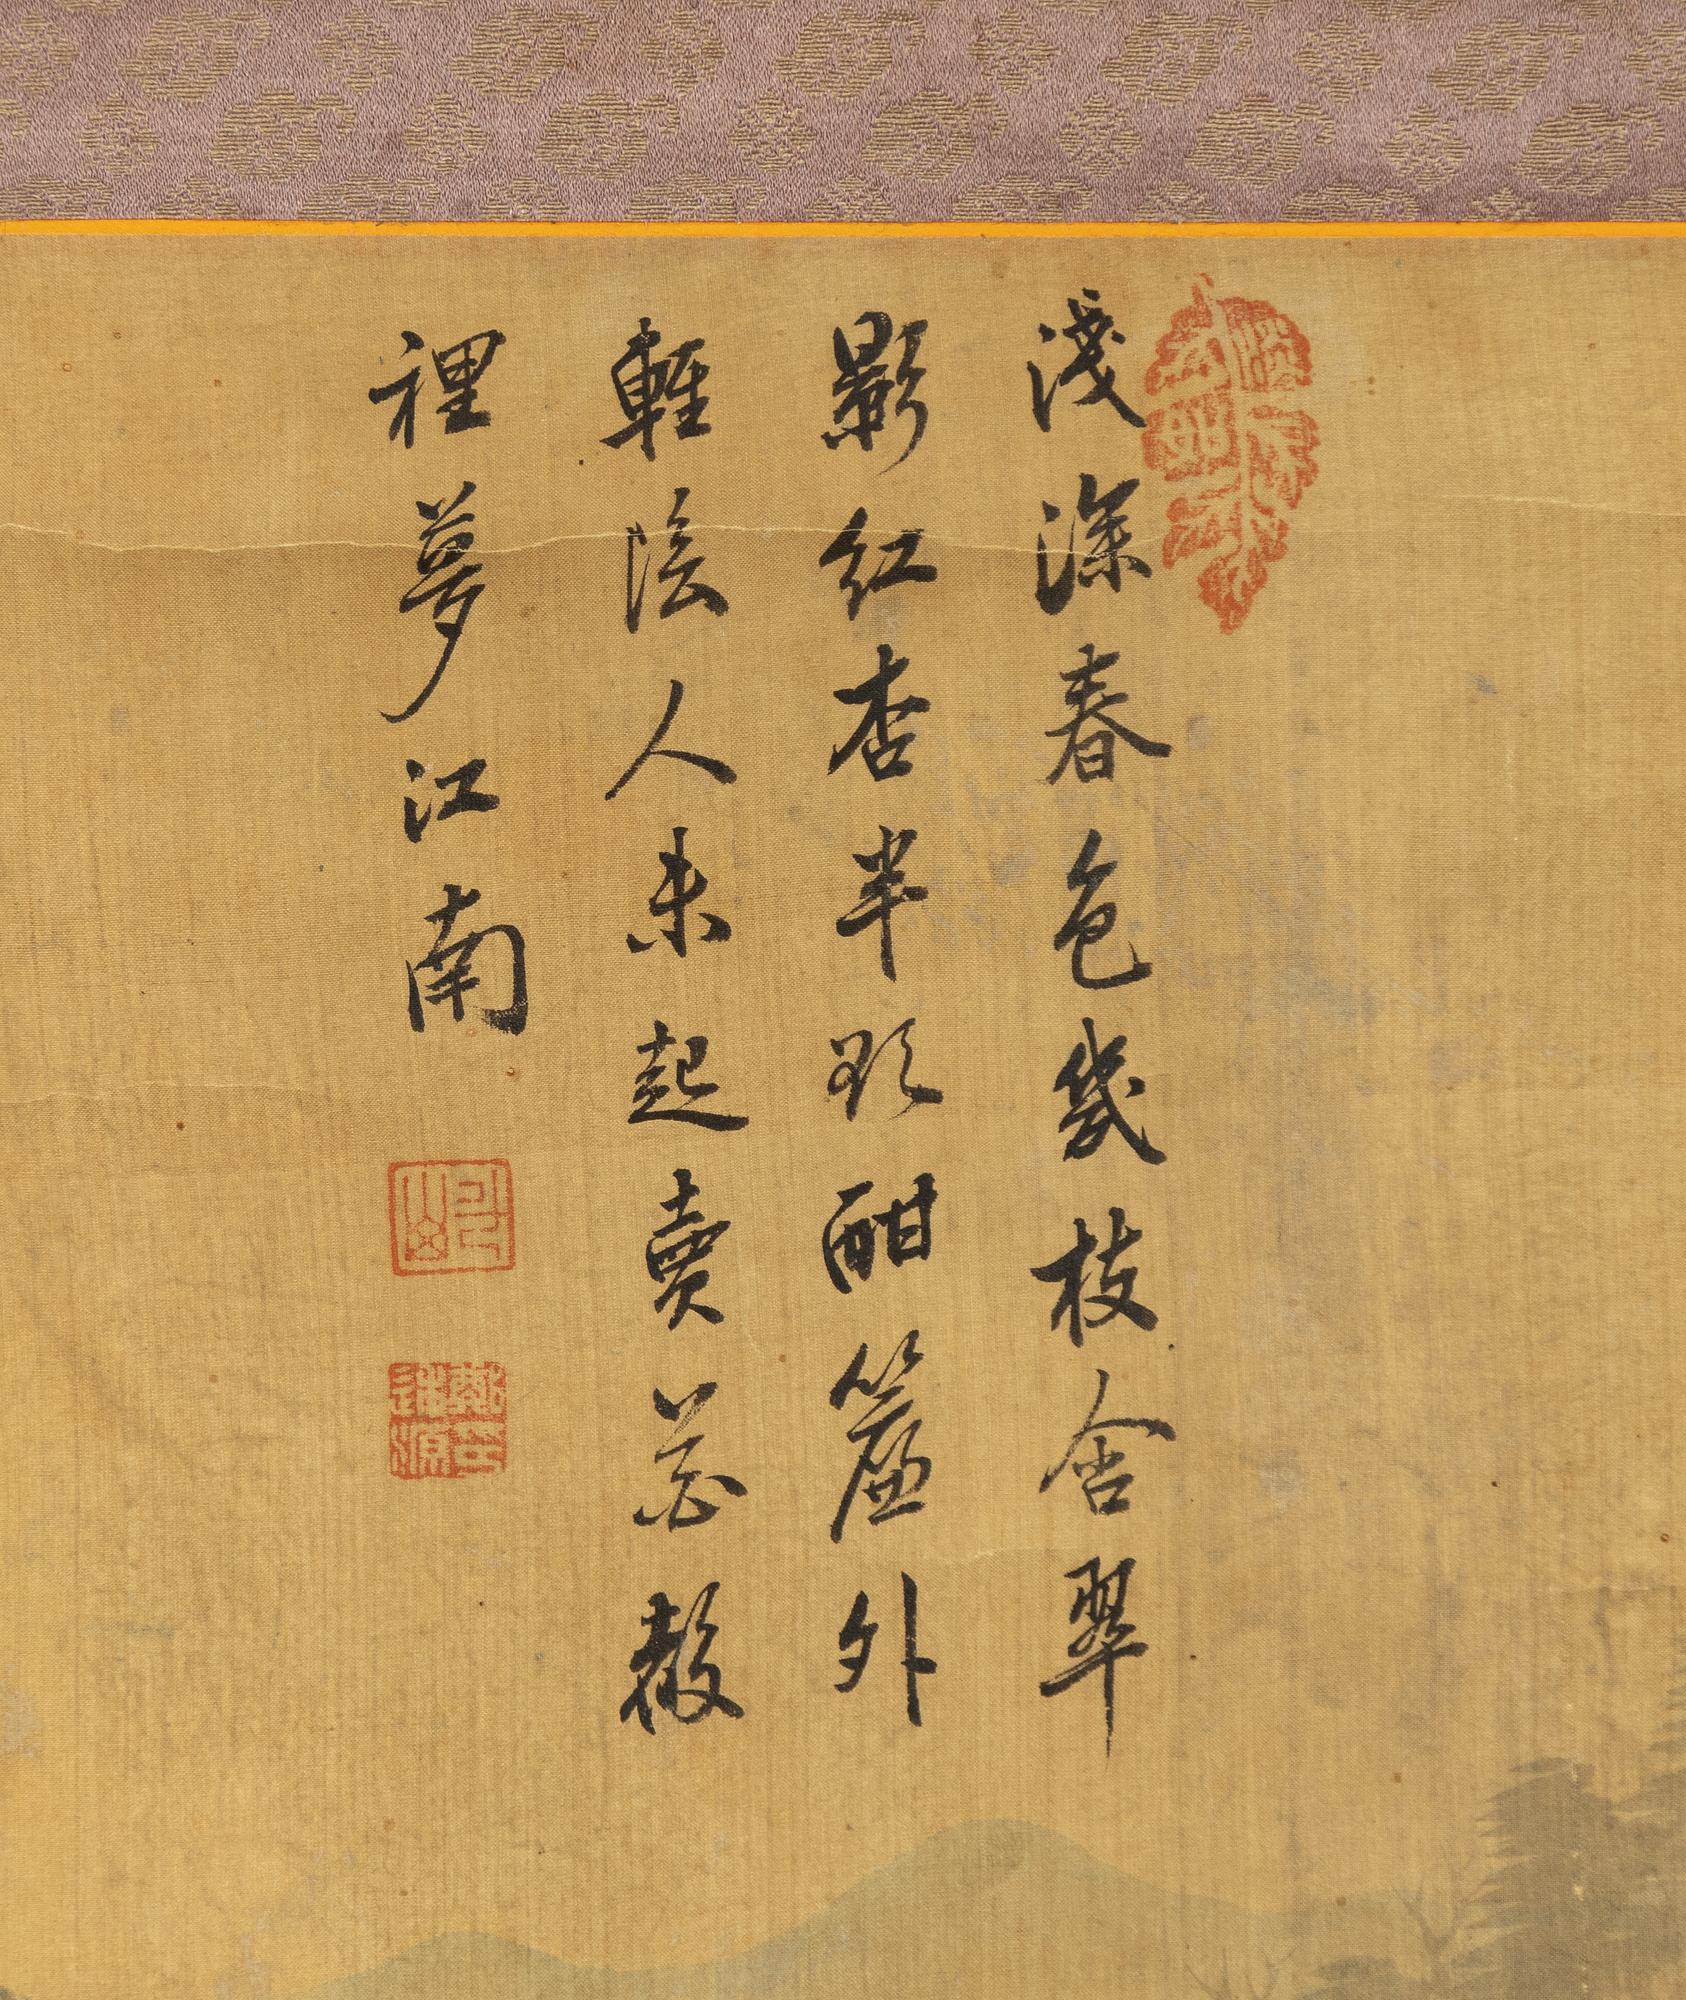 淺深春色幾枝含翠
影紅杏半欹酣簾外
輕陰人未起賣花聲
裡夢江南